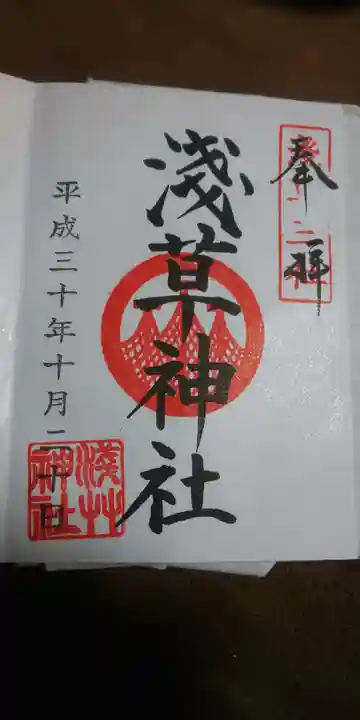 奉拝
淺草神社
平成三十年十月二十日
淺草神社